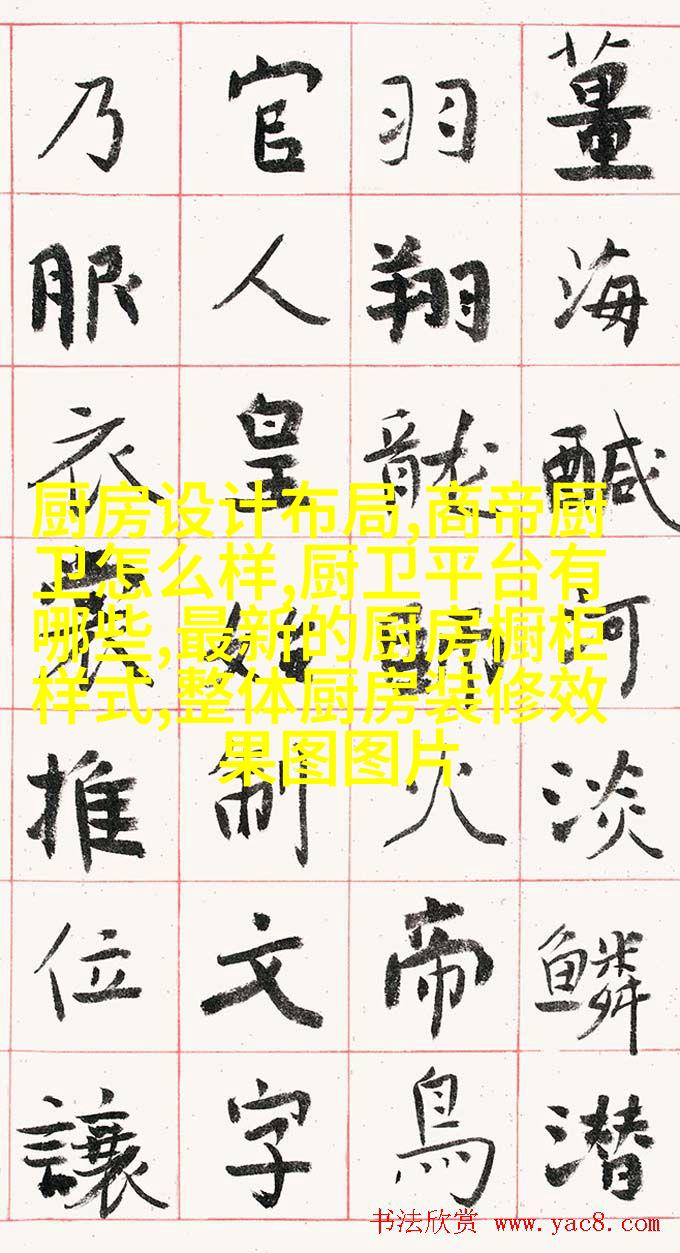 薑海鹹河淡鱗潛
羽翔龍師火帝鳥
官人皇始制文字
乃服衣裳推位讓
厨房设计布局,商帝厨
卫怎么样,厨卫平台有
哪些,最新的厨房橱柜
样式,整体厨房装修效
果图图片
书法欣赏 www.yac8.com